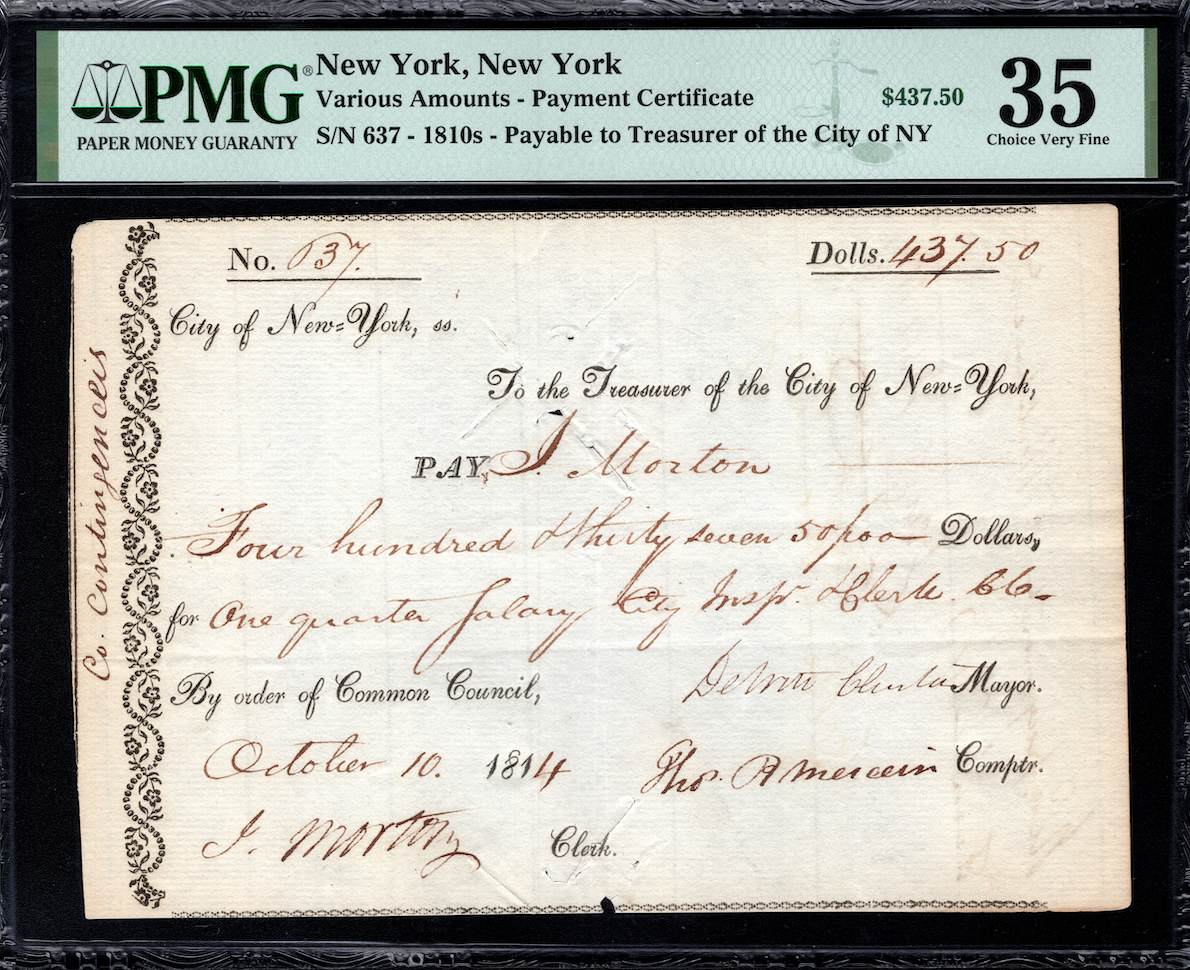 PMG® New York, New York
Various Amounts - Payment Certificate $437.50
PAPER MONEY GUARANTY S/N 637 - 1810s - Payable to Treasurer of the City of NY
35
Choice Very Fine
No. 637. Dolls. 437.50
City of New=York, ss.
To the Treasurer of the City of New=York,
PAY, J. Morton
Four hundred & thirty seven 50/100 Dollars,
for One quarter Salary City Insp.r & Clerk
By order of Common Council, DeWitt Clinton Mayor.
October 10. 1814 Tho.s R Mercein Comptr.
J. Morton Clerk.
Co. Contingencies